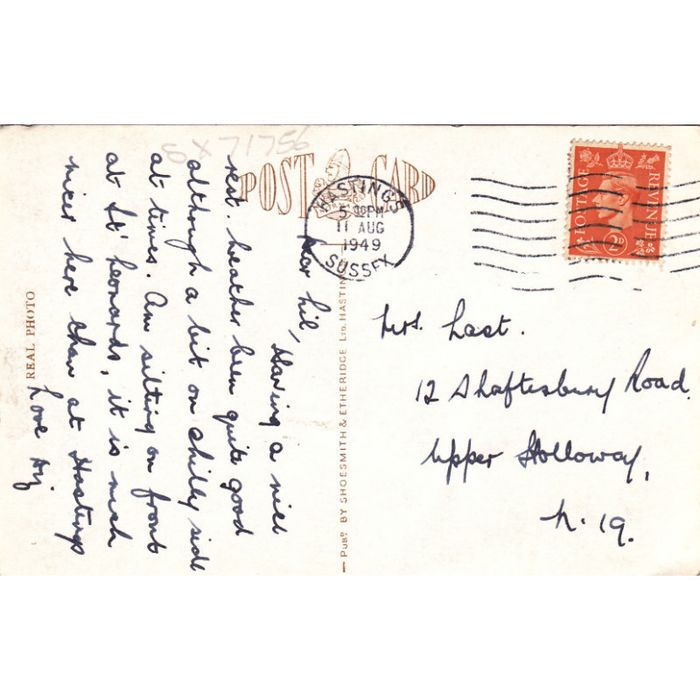 SX 71756
POST CARD
HASTINGS
5 30PM
11 AUG
1949
SUSSEX
POSTAGE REVENUE
2D
Dear Lil,
Having a nice
rest. Weather been quite good
although a bit on chilly side
at times. Am sitting on front
at St Leonards, it is much
nicer here than at Hastings
Love
Mrs. Last.
12 Shaftesbury Road.
Upper Holloway,
N. 19.
REAL PHOTO
PUBD. BY SHOESMITH & ETHERIDGE LTD. HASTIN